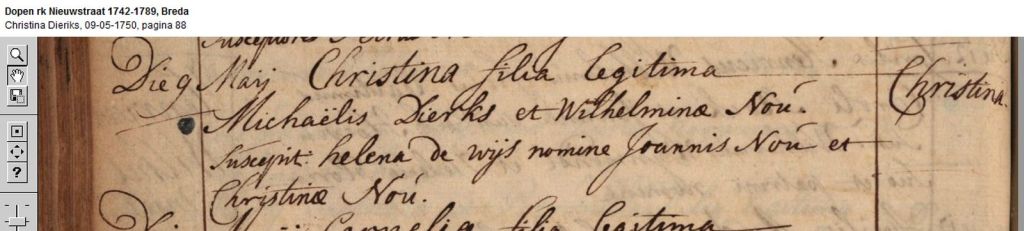 Dopen rk Nieuwstraat 1742-1789, Breda
Christina Dieriks, 09-05-1750, pagina 88
Die 9 Maij Christina filia legitima
Christina
Michaëlis Dierks et Wilhelminæ Noú.
suscepit: helena de wijs nomine Joannis Noú et
Christinæ Noú.
Cornelia filia legitima